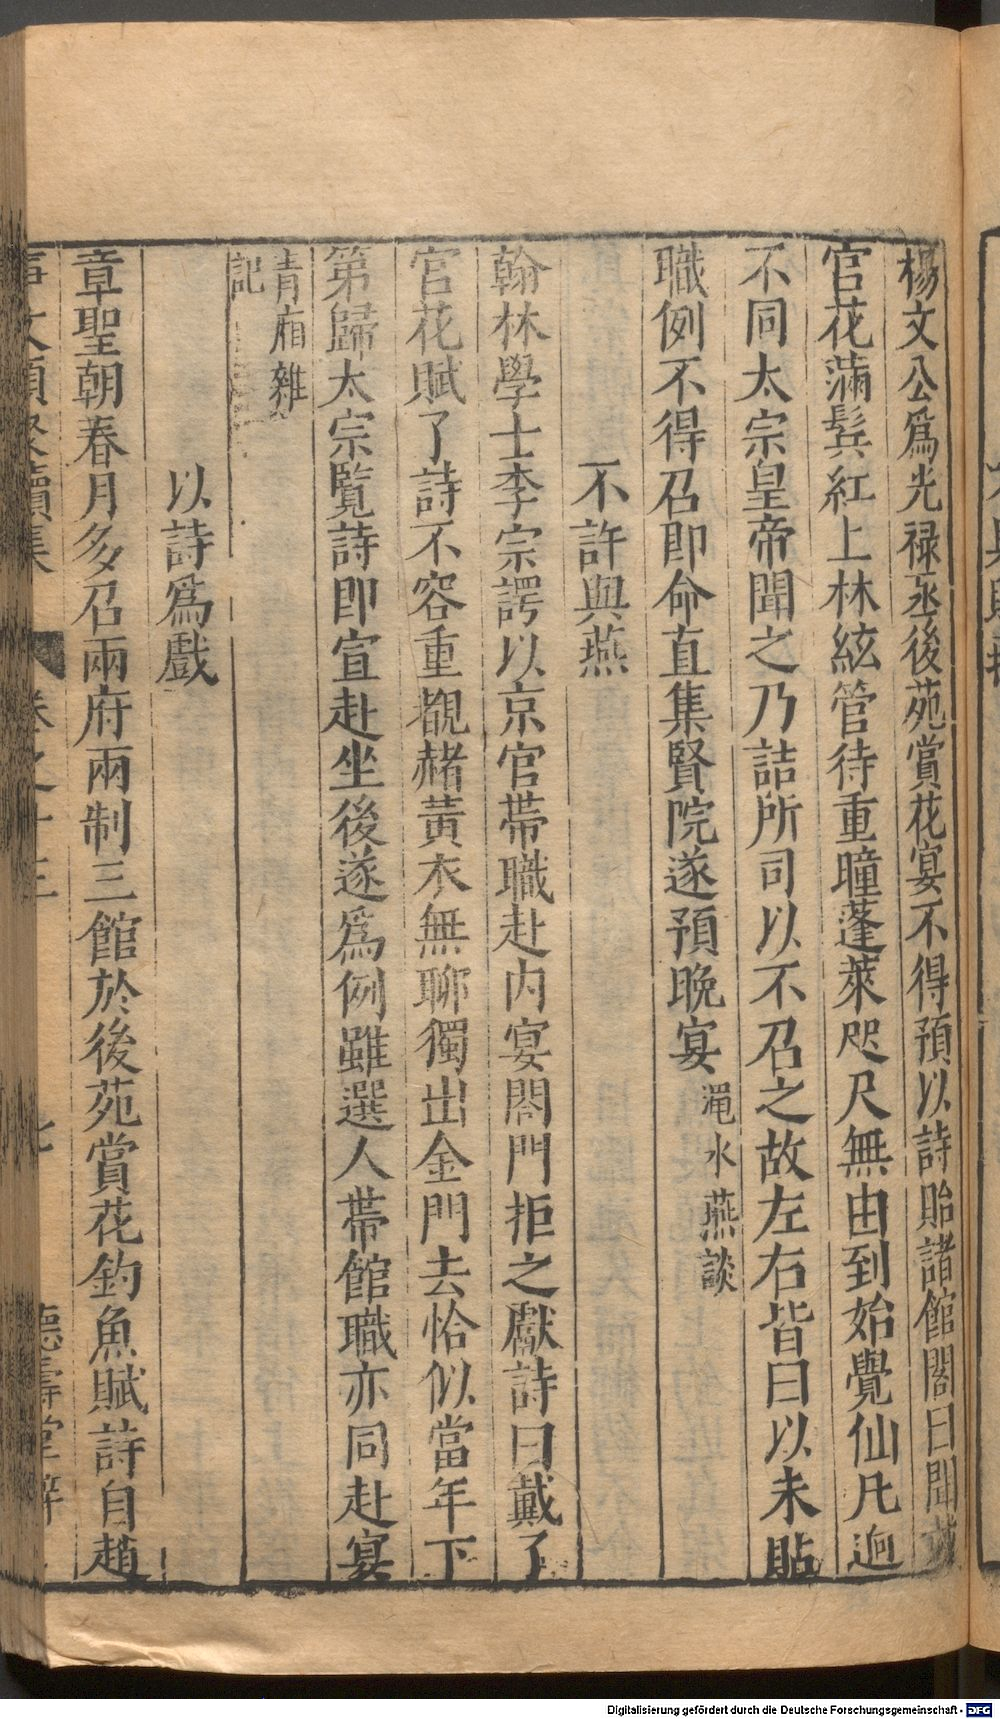 楊文公爲光禄丞後苑賞花宴不得預以詩貽諸館閣曰聞
官花滿鬂紅上林絃管待重瞳蓬萊咫尺無由到始覺仙凡逈
不同太宗皇帝聞之乃詰所司以不召之故左右皆曰以未貼
職例不得召即命直集賢院遂預晚宴 澠水燕談
不許與燕
翰林學士李宗諤以京官帯職赴内宴閤門拒之獻詩曰戴了
官花賦了詩不容重覩赭黄衣無聊獨出金門去恰似當年下
第歸太宗覽詩即宣赴坐後遂爲例雖選人帯館職亦同赴宴
青廂雜
記
以詩爲戲
章聖朝春月多召兩府兩制三館於後苑賞花釣魚賦詩自趙
事文類聚續集 卷之十三 七 德壽堂梓
Digitalisierung gefördert durch die Deutsche Forschungsgemeinschaft - DFG